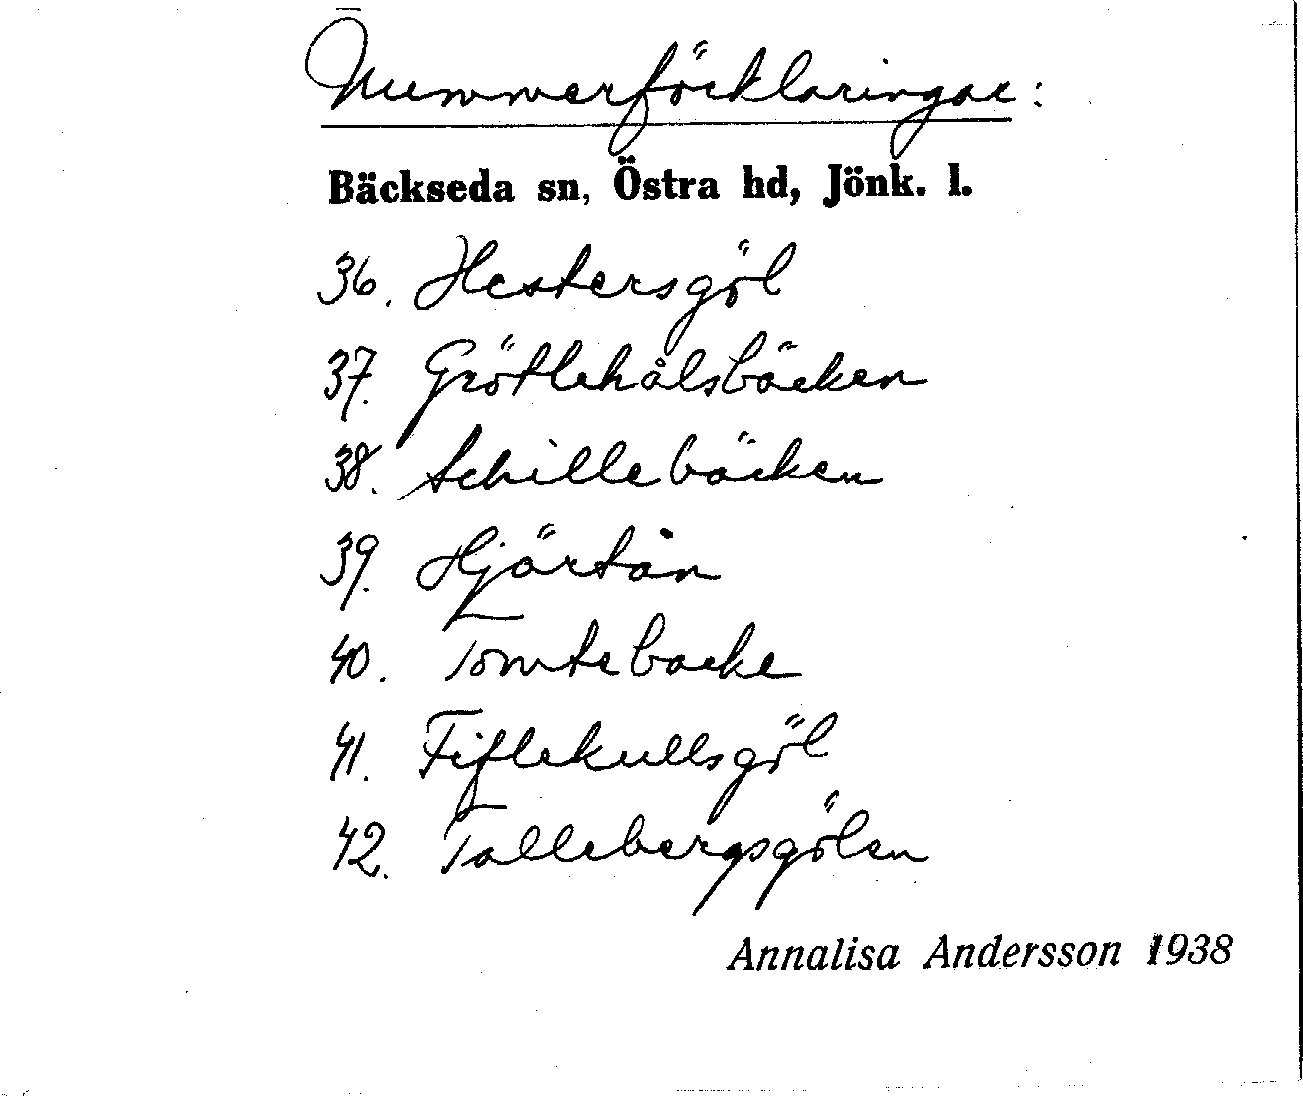 Nummerförklaringar:
Bäckseda sn, Östra hd, Jönk. l.
36. Hestersgöl
37. Grötlehålsbäcken
38. Schillebäcken
39. Hjärtån
40. Tomtebacke
41. Fiflekullsgöl
42. Tallebergsgölen
Annalisa Andersson 1938